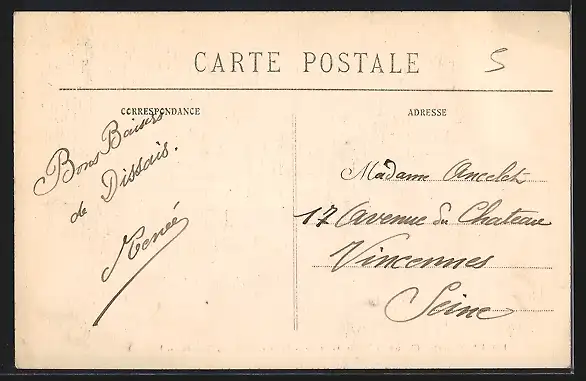 CARTE POSTALE
5
CORRESPONDANCE
Bons Baisers
de Dissais.
Renée
ADRESSE
Madame Ancelet
17 Avenue du Chateau
Vincennes
Seine